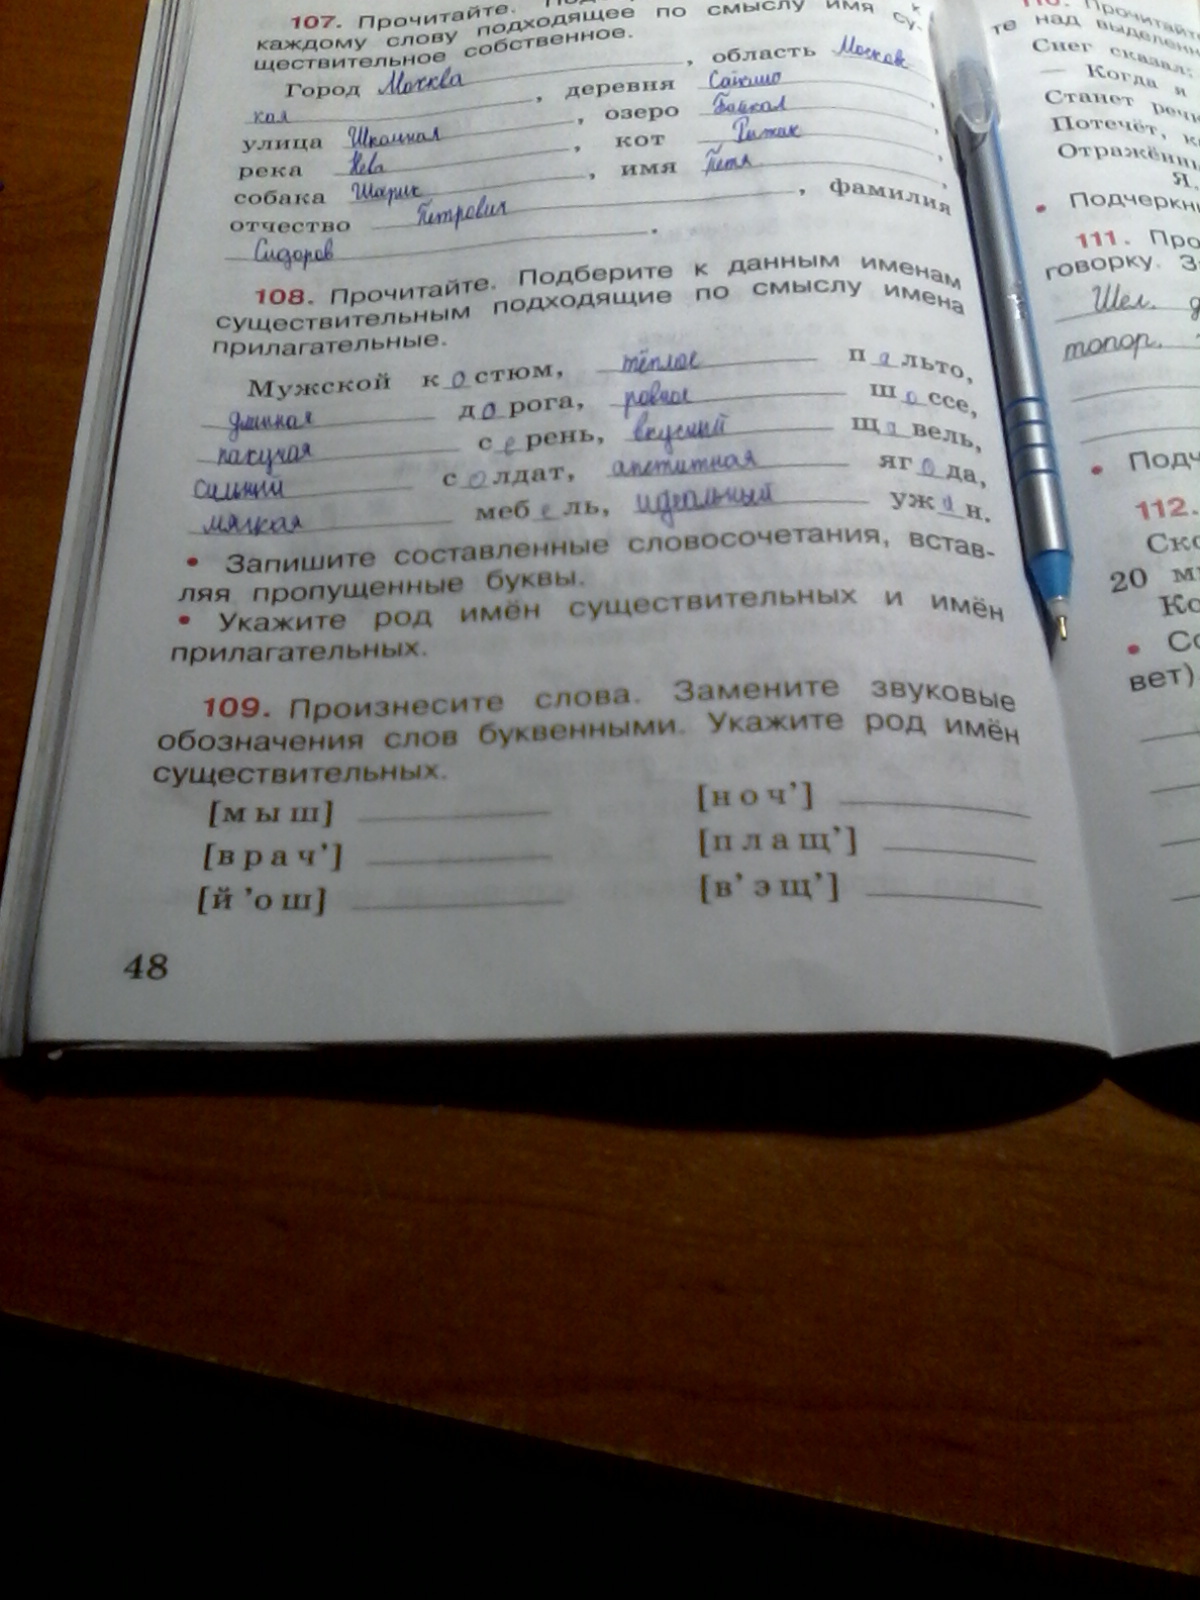 107. Прочитайте.
каждому слову подходящее по смыслу имя су-
ществительное собственное.
Город Москва , область Московс
кая , деревня
улица Школьная , озеро Байкал ,
река Нева , кот Рыжик ,
собака Шарик , имя Петя ,
отчество Петрович , фамилия
Сидоров .
108. Прочитайте. Подберите к данным именам
существительным подходящие по смыслу имена
прилагательные.
Мужской костюм, тёплое пальто,
длинная дорога, ровное шоссе,
пахучая серень, вкусний щавель,
сильний солдат, апетитная ягода,
мягкая мебель, идеальный ужин.
• Запишите составленные словосочетания, встав-
ляя пропущенные буквы.
• Укажите род имён существительных и имён
прилагательных.
109. Произнесите слова. Замените звуковые
обозначения слов буквенными. Укажите род имён
существительных.
[м ы ш] [н о ч’]
[в р а ч’] [п л а щ’]
[й ’о ш] [в’ э щ’]
48
те
Прочитайте
над выделенн
Снег сказал:
— Когда я
Станет речк
Потечёт, к
Отражённы
Я.
• Подчеркни
111. Про
говорку. З
Шел. д
топор.
• Подч
112.
Ско
20 м
Ко
• Со
вет)